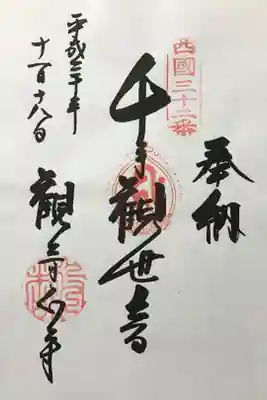 奉納
西國三十二番
千手観世音
観音正寺
平成二十年
十一月十八日